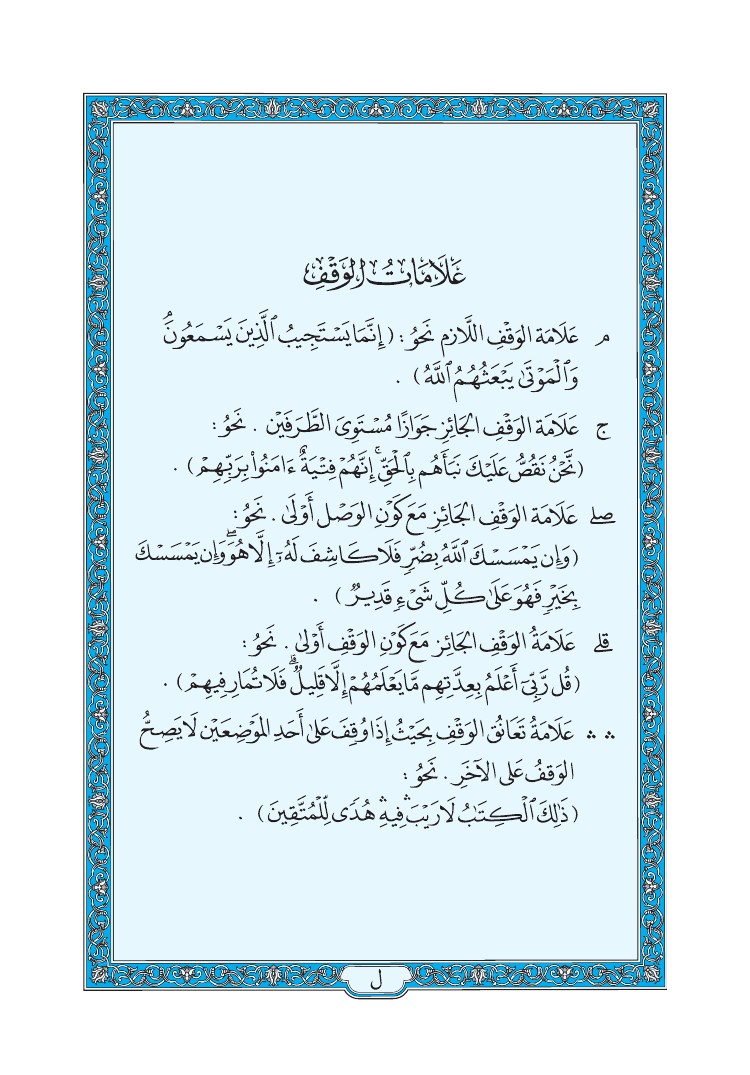 عَلَامَاتُ الوَقْفِ
مـ عَلَامَة الوَقْفِ اللَّازِم نَحوُ : ( إِنَّمَا يَسْتَجِيبُ ٱلَّذِينَ يَسْمَعُونَۘ
وَٱلْمَوْتَىٰ يَبْعَثُهُمُ ٱللَّهُ ) .
ج عَلَامَة الوَقْفِ الجَائِزِ جَوَازًا مُسْتَوِيَ الطَّرَفَيْنِ . نَحوُ :
( نَّحْنُ نَقُصُّ عَلَيْكَ نَبَأَهُم بِٱلْحَقِّۚ إِنَّهُمْ فِتْيَةٌ ءَامَنُوا۟ بِرَبِّهِمْ ) .
صلے عَلَامَة الوَقْفِ الجَائِز مَعَ كَوْنِ الوَصْل أَوْلَىٰ . نَحوُ :
( وَإِن يَمْسَسْكَ ٱللَّهُ بِضُرٍّ فَلَا كَاشِفَ لَهُۥٓ إِلَّا هُوَۖ وَإِن يَمْسَسْكَ
بِخَيْرٍ فَهُوَ عَلَىٰ كُلِّ شَىْءٍ قَدِيرٌ ) .
قلے عَلَامَةُ الوَقْفِ الجَائِز مَعَ كَوْنِ الوَقْفِ أَوْلَىٰ . نَحوُ :
( قُل رَّبِّىٓ أَعْلَمُ بِعِدَّتِهِم مَّا يَعْلَمُهُمْ إِلَّا قَلِيلٌۗ فَلَا تُمَارِ فِيهِمْ ) .
ۛ ۛ عَلَامَةُ تَعَانُق الوَقْفِ بِحَيْثُ إِذَا وُقِفَ عَلىٰ أَحَدِ المَوْضِعَيْن لَا يَصِحُّ
الوَقفُ عَلى الآخَرِ . نَحوُ :
( ذَٰلِكَ ٱلْكِتَـٰبُ لَا رَيْبَۛ فِيهِۛ هُدًى لِّلْمُتَّقِينَ ) .
ل